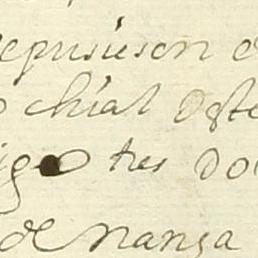 epusieron
ochial deste
igo tres do
de nansa